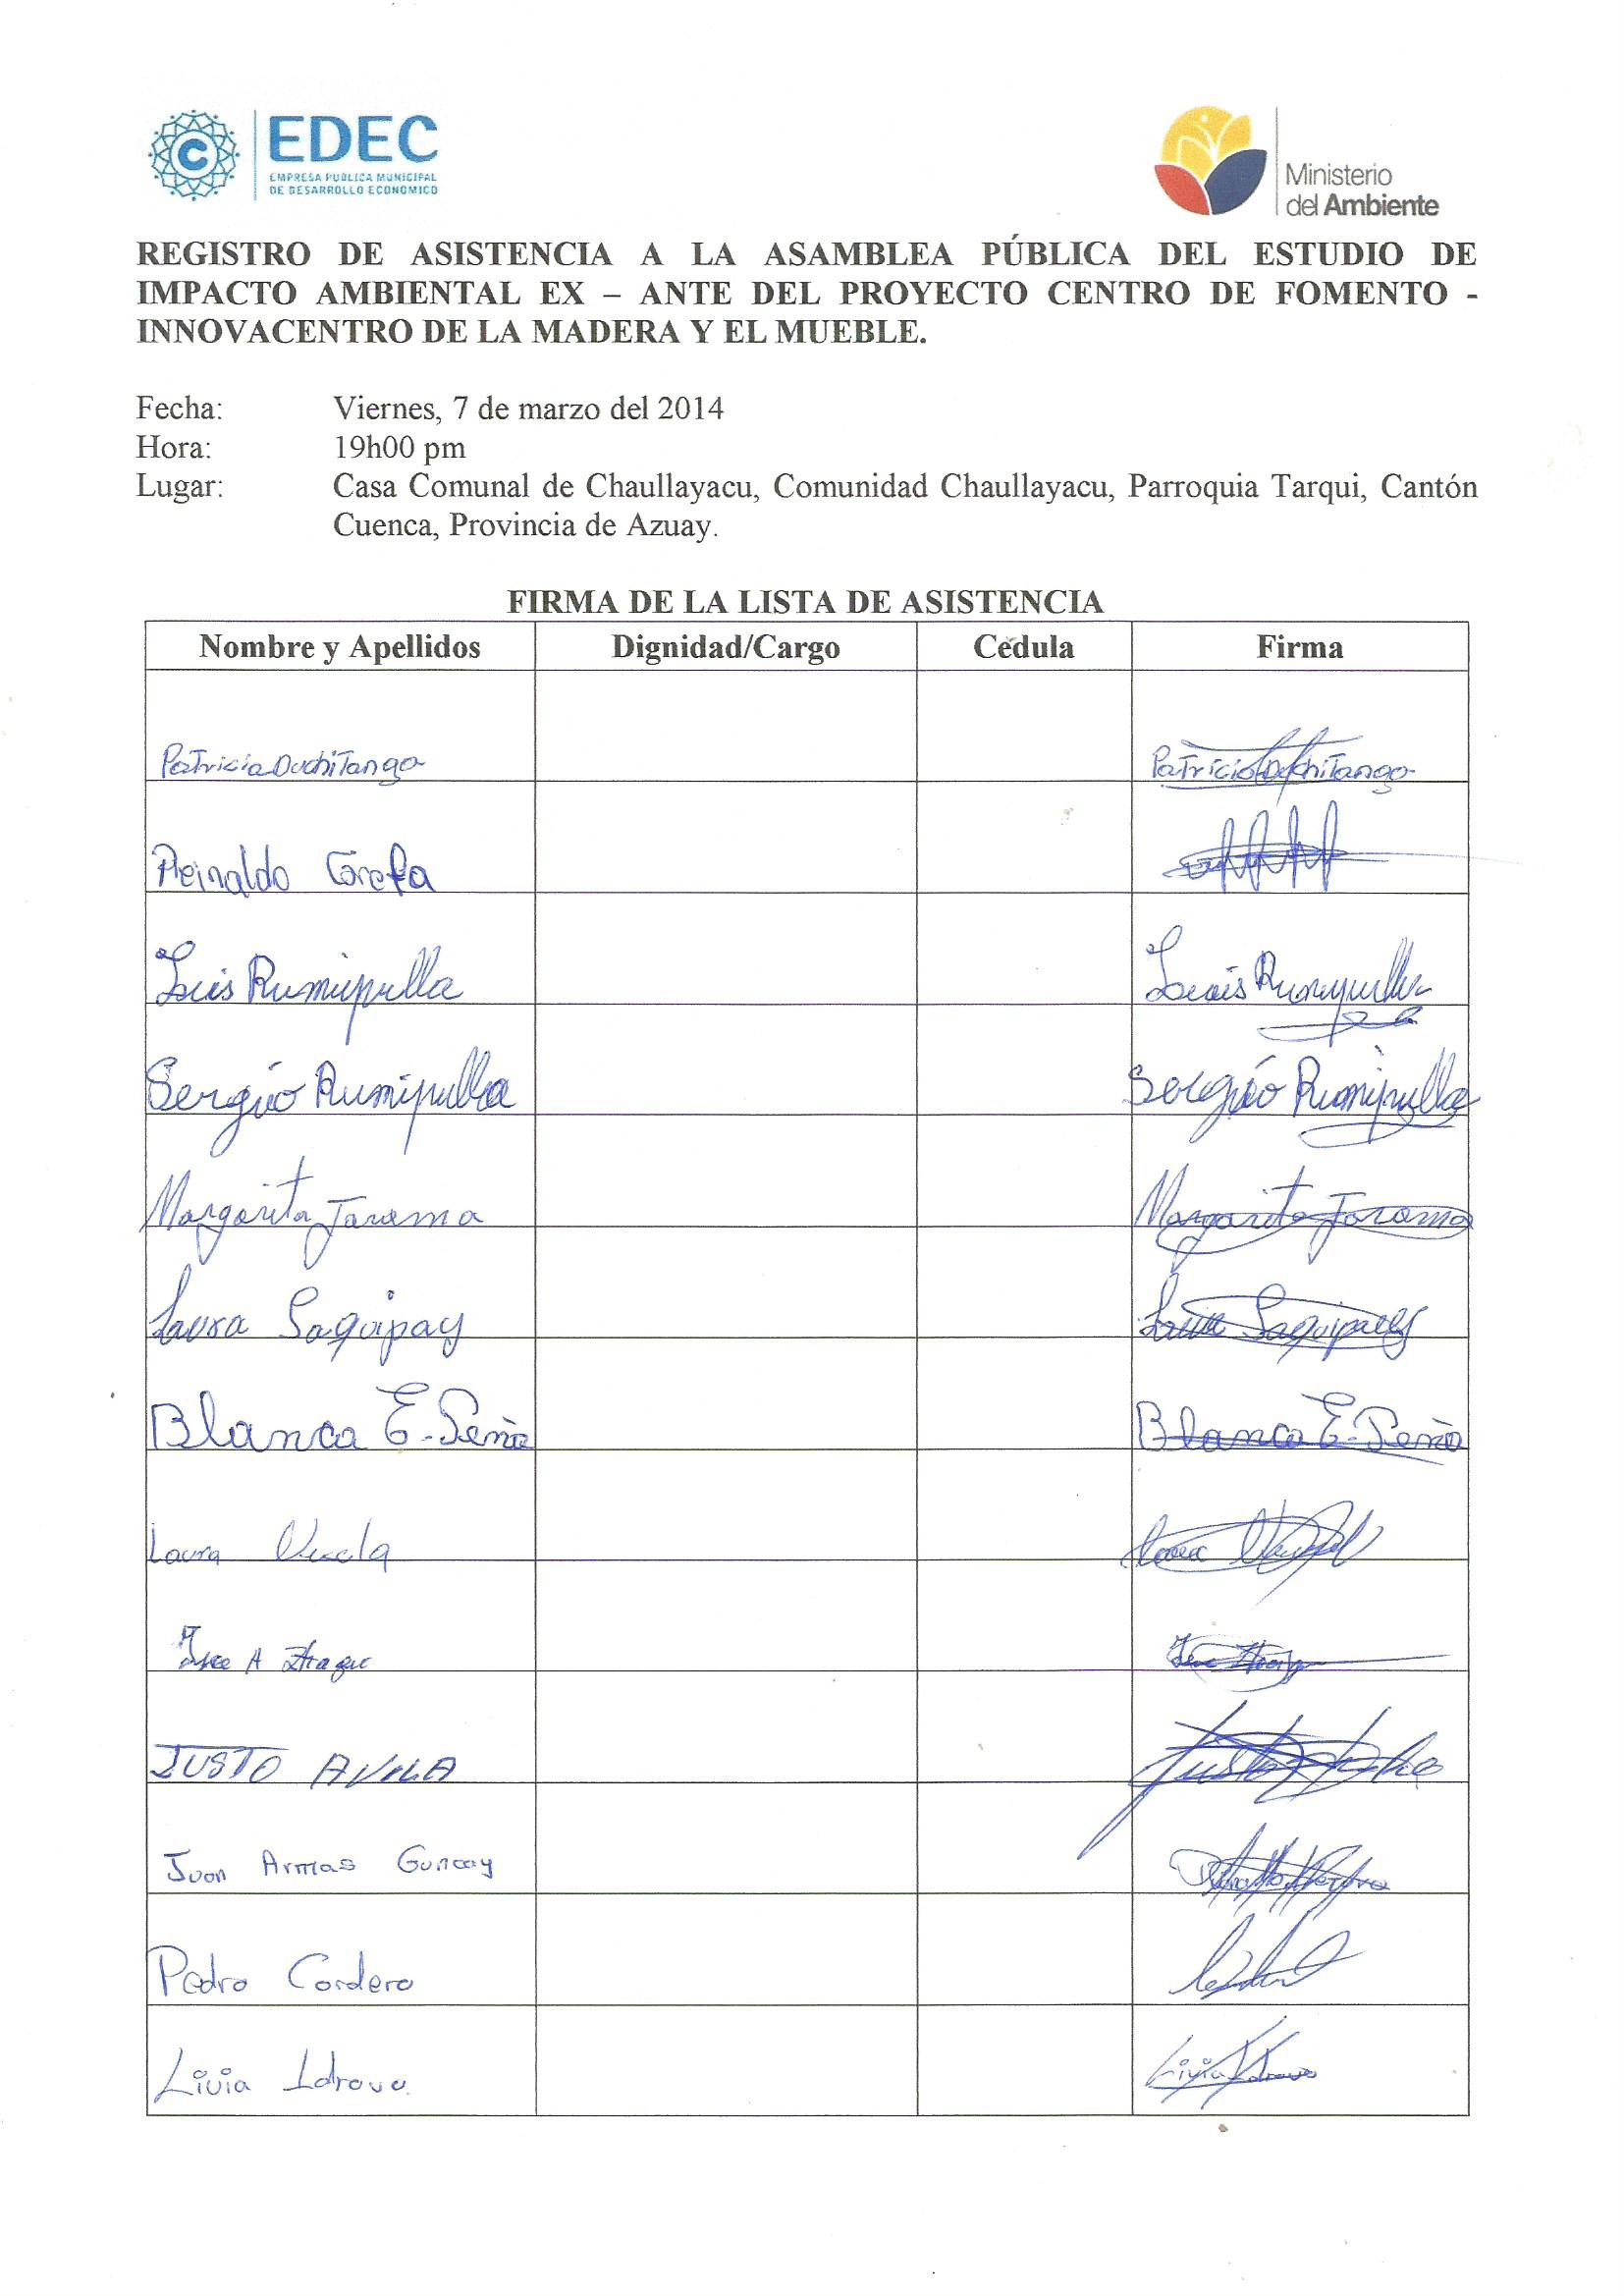 EDEC
EMPRESA PÚBLICA MUNICIPAL
DE DESARROLLO ECONÓMICO
Ministerio
del Ambiente
REGISTRO DE ASISTENCIA A LA ASAMBLEA PÚBLICA DEL ESTUDIO DE
IMPACTO AMBIENTAL EX – ANTE DEL PROYECTO CENTRO DE FOMENTO -
INNOVACENTRO DE LA MADERA Y EL MUEBLE.
Fecha: Viernes, 7 de marzo del 2014
Hora: 19h00 pm
Lugar: Casa Comunal de Chaullayacu, Comunidad Chaullayacu, Parroquia Tarqui, Cantón
Cuenca, Provincia de Azuay.
FIRMA DE LA LISTA DE ASISTENCIA
Nombre y Apellidos Dignidad/Cargo Cédula Firma
Patricia Duchitanga Patricia Duchitanga
Reinaldo
Luis Rumipulla Luis Rumipulla
Sergio Rumipulla Sergio Rumipulla
Margarita Jarama Margarita Jarama
Laura Saquipay Laura Saquipay
Blanca E. Peña Blanca E. Peña
Laura
A
JUSTO AVILA Justo
Juan Armas Guncay
Pedro Cordero
Livia Idrovo Livia Idrovo